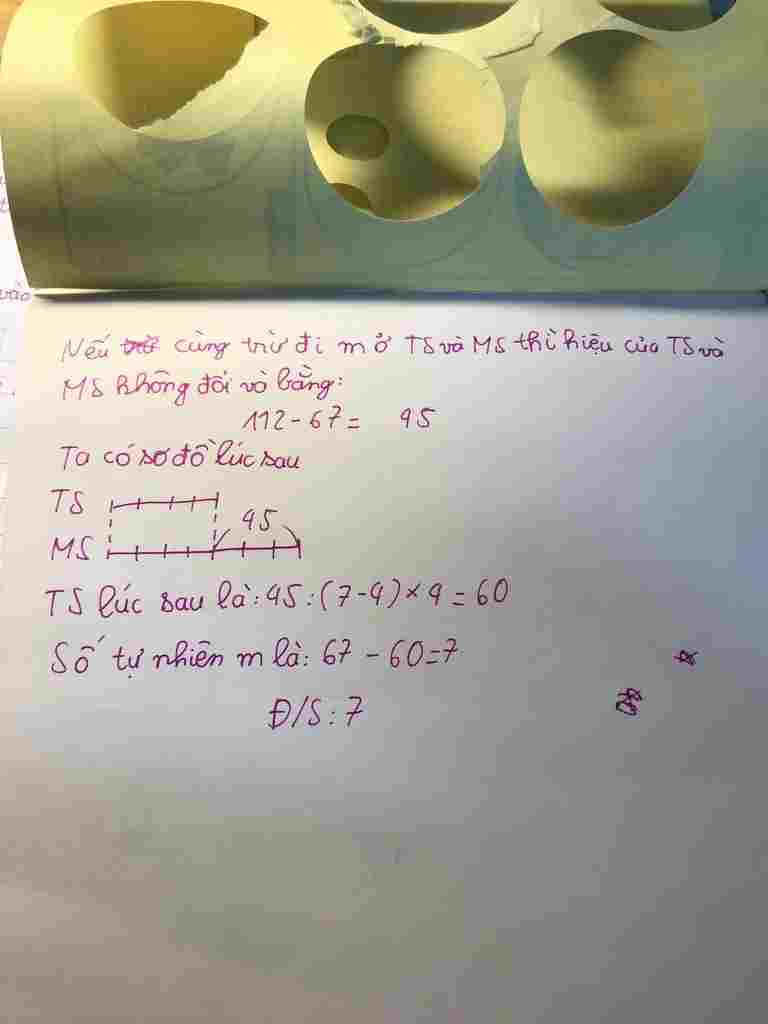 Nếu cùng trừ đi m ở TS và MS thì hiệu của TS và
MS không đổi và bằng:
112 - 67 = 45
Ta có sơ đồ lúc sau
TS
45
MS
TS lúc sau là: 45 : (7 - 4) × 4 = 60
Số tự nhiên m là: 67 - 60 = 7
Đ/S : 7
vào